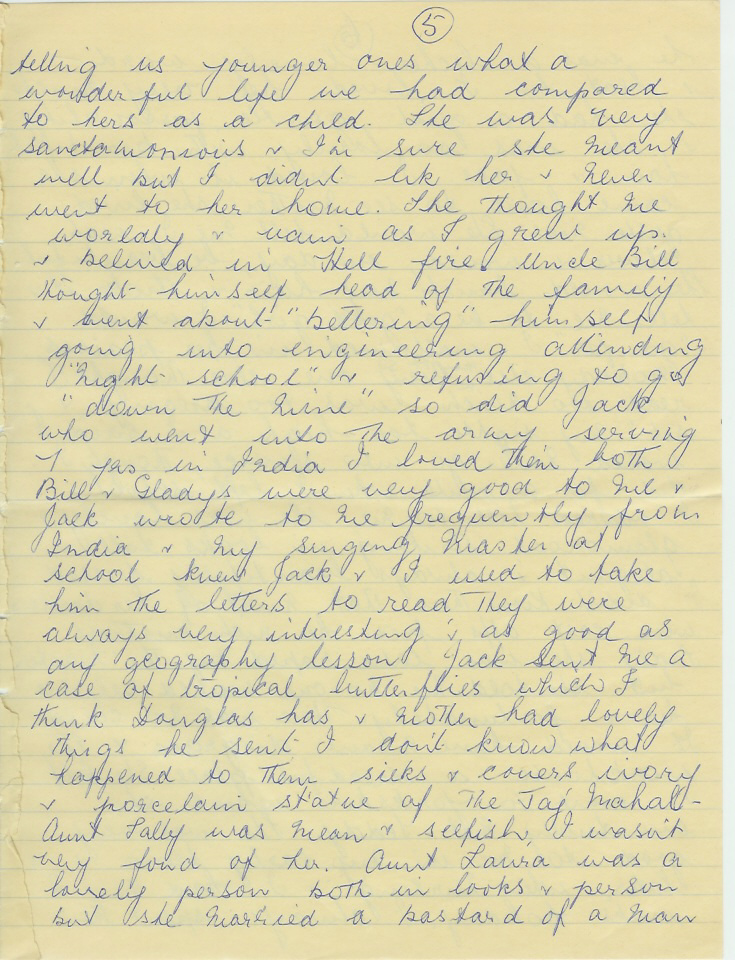 5
telling us younger ones what a
wonderful life we had compared
to hers as a child. She was very
sanctamonsois & I'm sure she meant
well but I didnt lik her & never
went to her home. She thought me
worldly & vain as I grew up.
& belived in Hell fire. Uncle Bill
thought himself head of the family
& went about "bettering" himself
going into engineering attending
"night school" & refusing to go
"down the mine" so did Jack
who went into the army serving
7 yrs in India I loved them both
Bill & Gladys were very good to me &
Jack wrote to me frequently from
India & my singing master at
school knew Jack & I used to take
him the letters to read They were
always very interesting & as good as
any geography lesson Jack sent me a
case of tropical butterflies which I
think Douglas has & mother had lovely
things he sent I don't know what
happened to them silks & covers ivory
& porcelain statue of the Taj Mahal -
Aunt Sally was mean & selfish, I wasn't
very fond of her. Aunt Laura was a
lovely person both in looks & person
but she married a bastard of a man